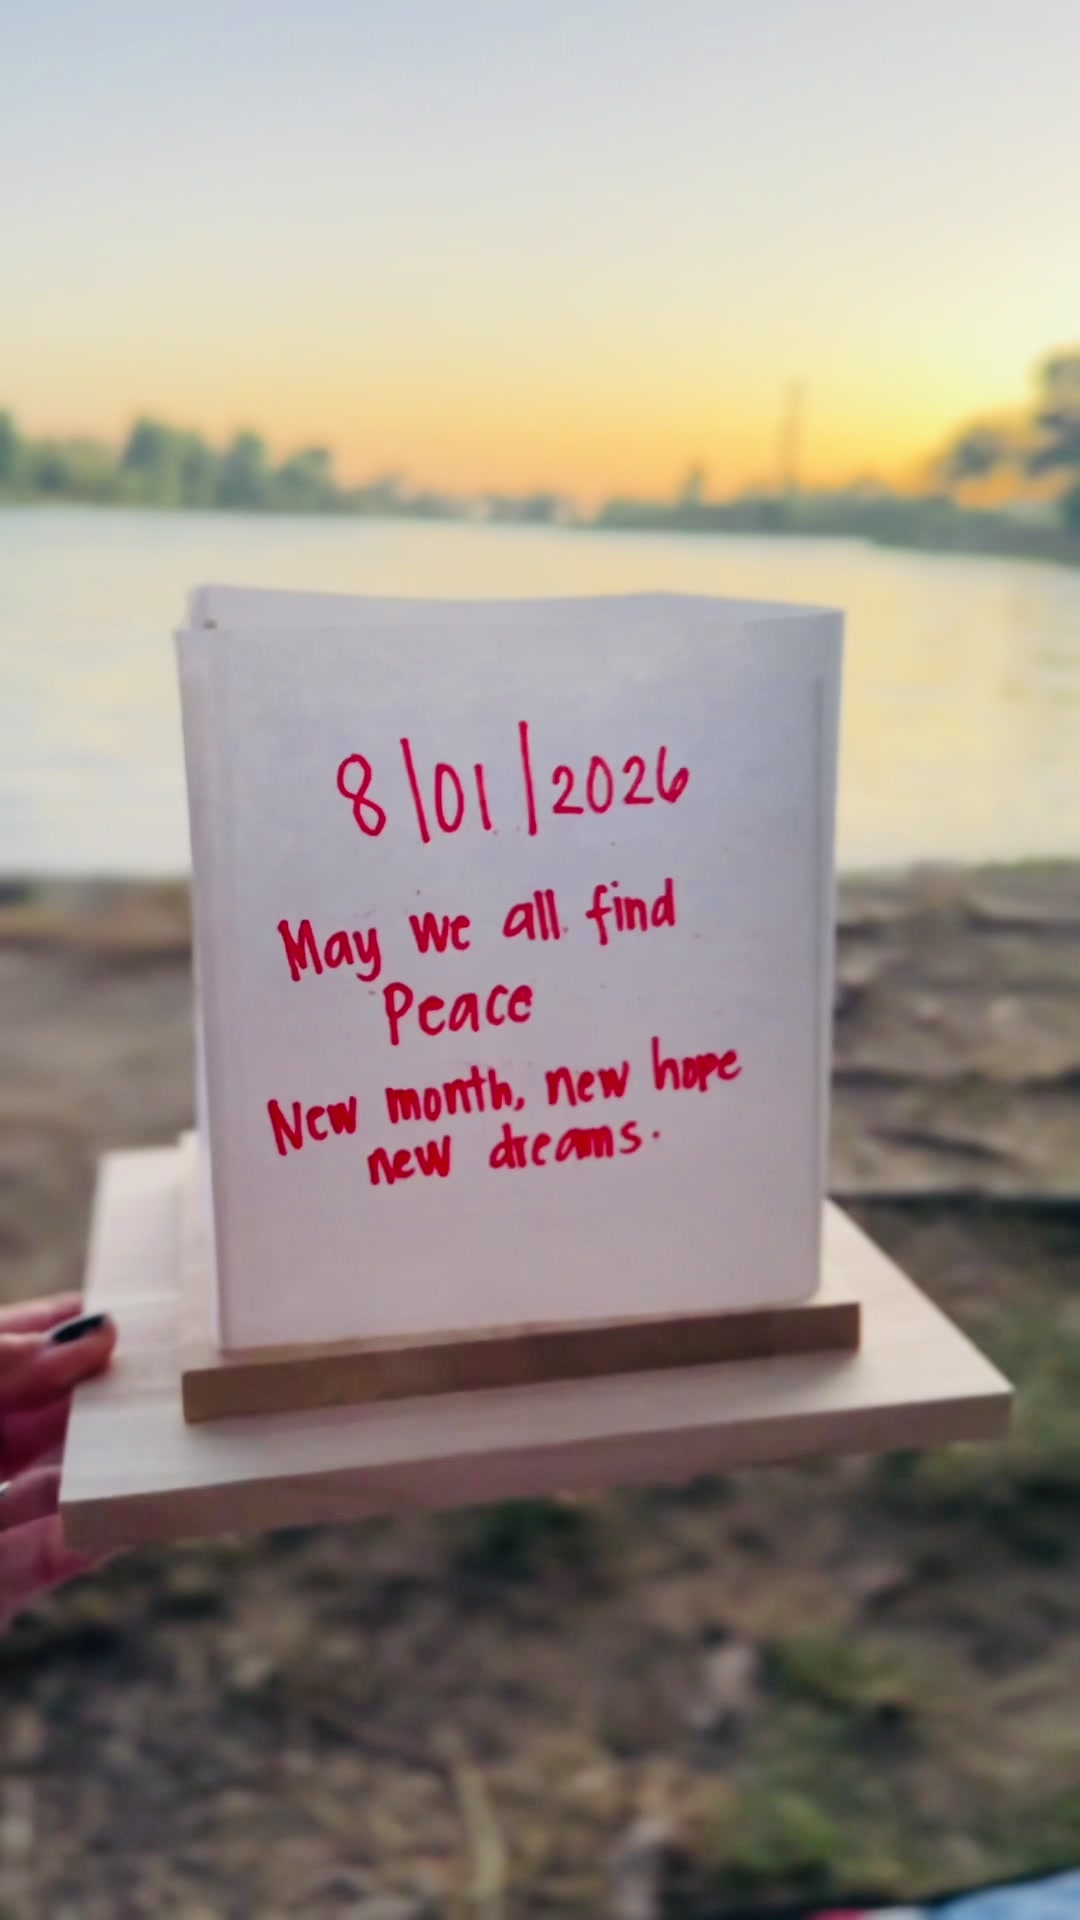 8/01/2026
May we all find
Peace
New month, new hope
new dreams.